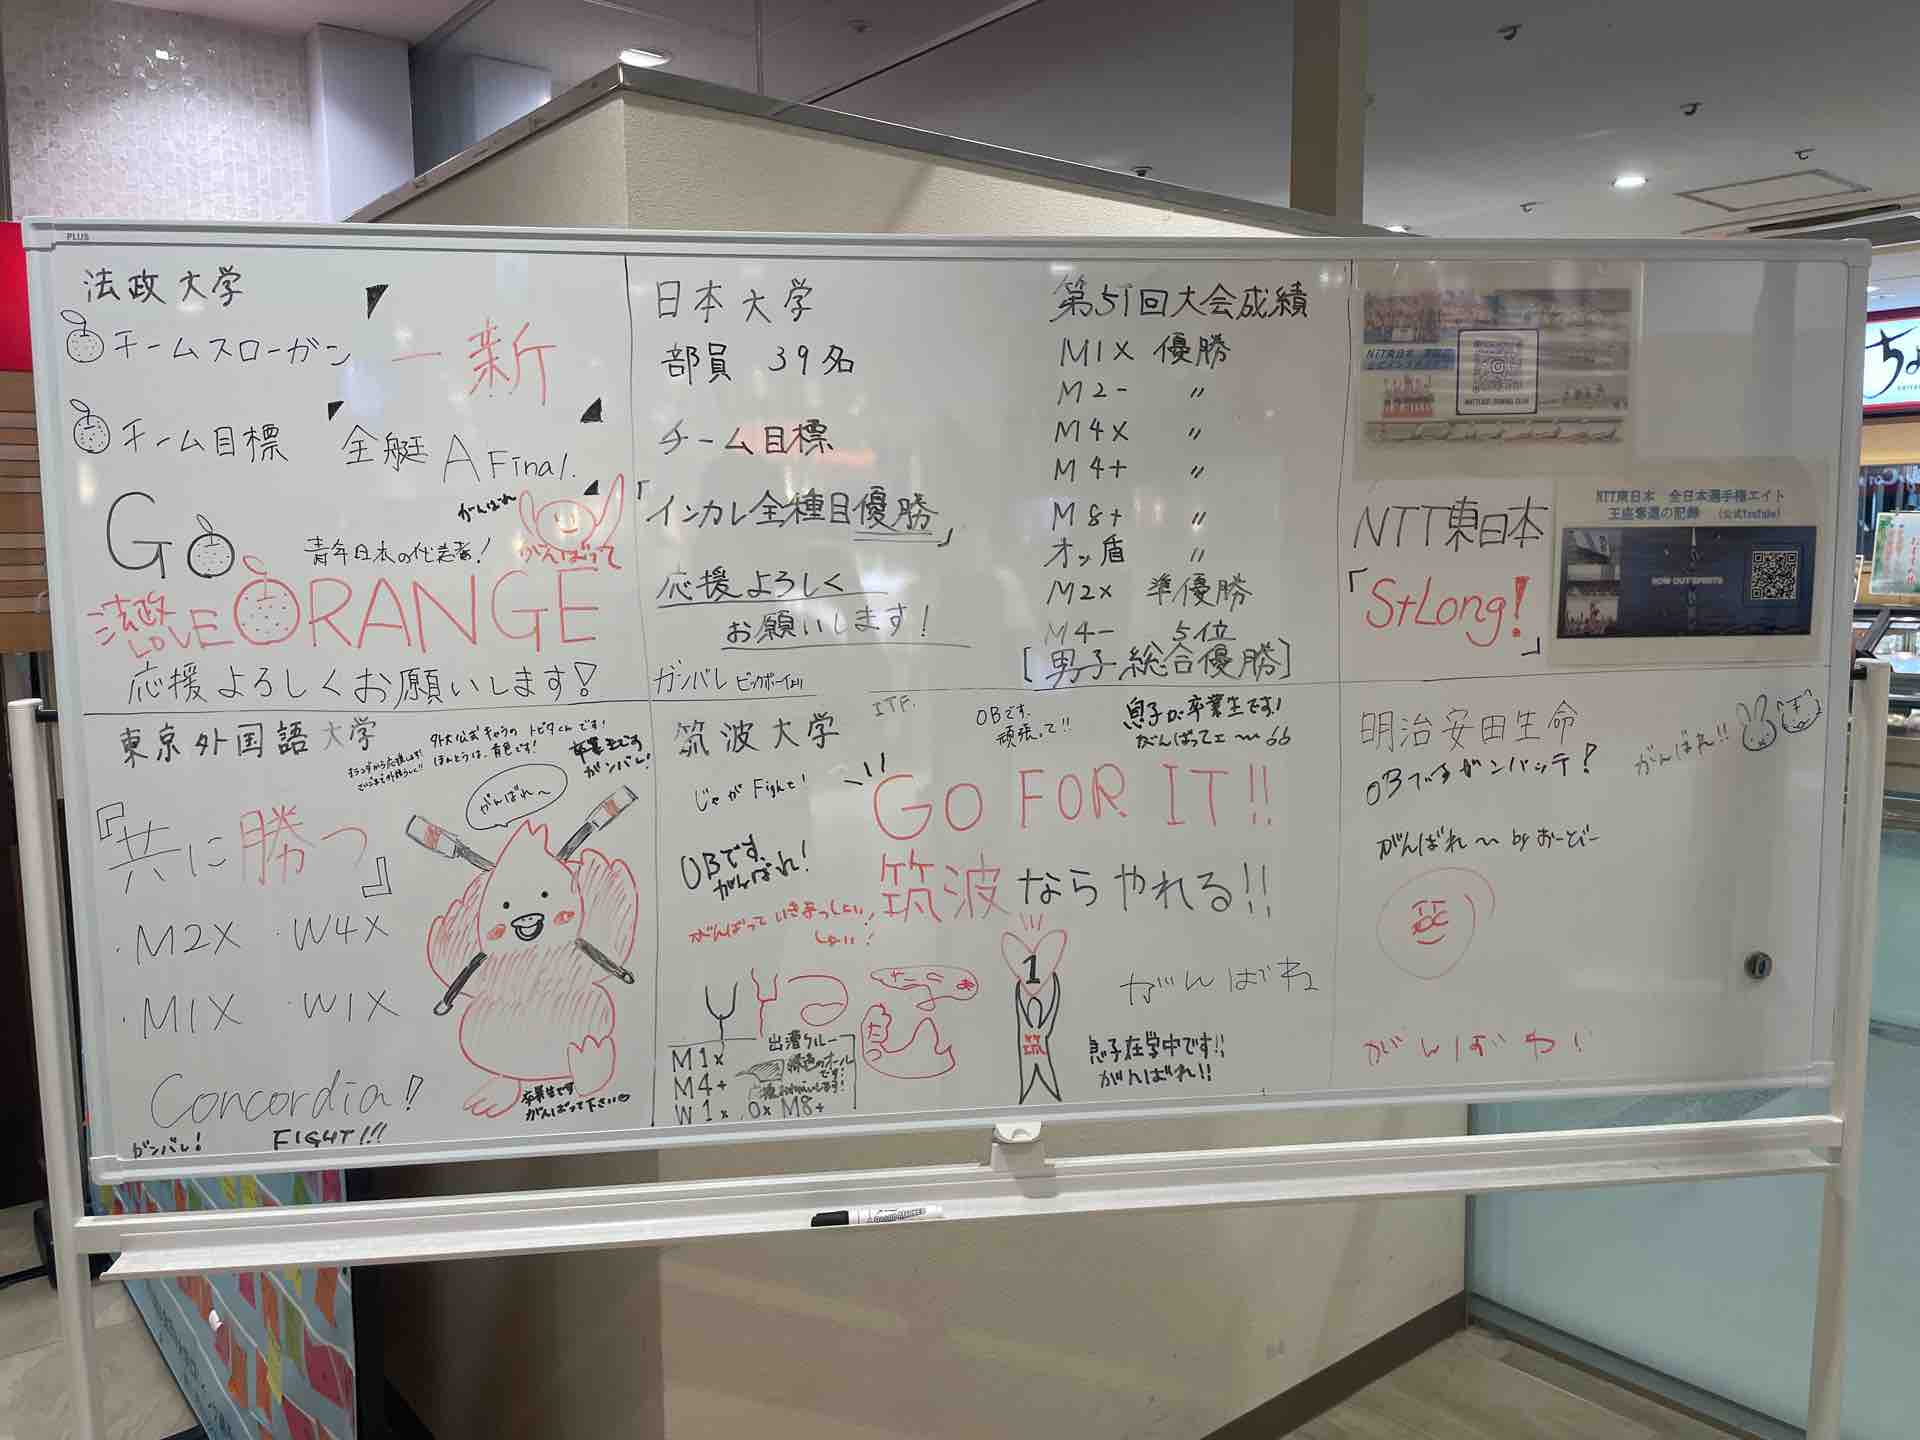 PLUS
法政大学
チームスローガン 一新
チーム目標 全艇 A Final.
がんばれ
がんばって
GO
青年日本の代表者!
法政
LOVE
ORANGE
応援よろしくお願いします!
日本大学
部員 39名
チーム目標
「インカレ全種目優勝」
応援よろしく
お願いします!
ガンバレ
第51回大会成績
M1X 優勝
M2- 〃
M4X 〃
M4+ 〃
M8+ 〃
オッ盾 〃
M2X 準優勝
M4- 5位
[男子総合優勝]
NTT東日本
「StLong!」
NTT東日本 全日本選手権エイト
王座奪還の記録 (公式YouTube)
東京外国語大学
外大公式キャラの トビタくんです!
ほんとうは、青色です!
卒業生です
ガンバレ!
がんばれ〜
『共に勝つ』
・M2X ・W4X
・M1X ・W1X
Concordia!!
ガンバレ!
FIGHT!!!
卒業生です
がんばって下さい♡
筑波大学
ITF.
OBです.
頑張って!!
息子が卒業生です!
がんばってェ〜
GO FOR IT!!
OBです、
がんばれ!
筑波ならやれる!!
出漕クルー
緑色のオール
です!
M1x
M4+
W1x
M8+
1
筑
がんばれ
息子在学中です!!
がんばれ!!
明治安田生命
OBですガンバッテ!
がんばれ!!
がんばれ〜 by おーどどー
がんばれ!
ちょ